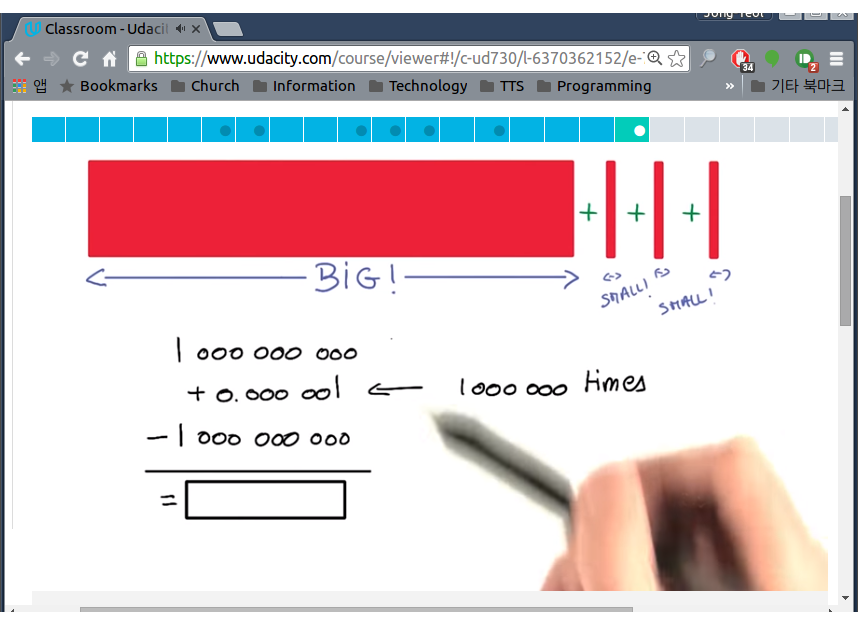 Jong Yeol
Classroom - Udacit
https://www.udacity.com/course/viewer#!/c-ud730/l-6370362152/e-
34
2
앱 Bookmarks Church Information Technology TTS Programming » 기타 북마크
+ + +
BiG!
SMALL! SMALL!
1 000 000 000
+ 0.000 001 ← 1000 000 times
- 1 000 000 000
=